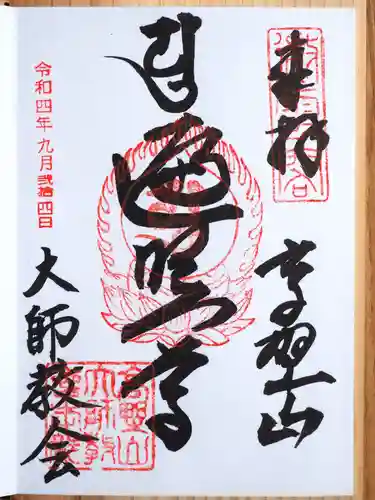 奉拝
高野山
遍照尊
大師教会
令和四年九月弐拾四日